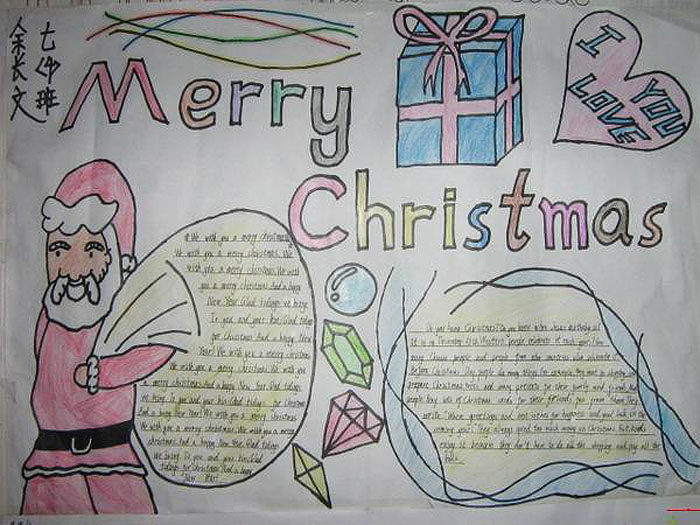 七(4)班
余长文
Merry
Christmas
I LOVE YOU
We wish you a merry christmas.
We wish you a merry christmas. We
wish you a merry christmas. We wish
you a merry christmas And a happy
New Year. Glad tidings we bring
To you and your kin. Glad tidings
for Christmas And a happy New
Year! We wish you a merry christmas
We wish you a merry christmas. We wish you
a merry christmas And a happy New Year. Glad tidings
we bring To you and your kin Glad tidings for Christmas
And a happy New Year! We wish you a merry christmas
We wish you a merry christmas. We wish you a merry
christmas And a happy New Year. Glad tidings
we bring To you and your kin. Glad
tidings for christmas And a happy
New Year!
Do you know Christmas? Do you know
It is on December 25th. Western people celebrate it each year. Now
many Chinese people and people from other countries also celebrate it.
Before Christmas Day people do many things. For example, they
prepare Christmas trees and many presents for their family and friends.
people buy lots of Christmas cards for their friends
words "Warm greetings and best wishes for happiness and good luck in the
coming year!" They always spend too much money on Christmas. But
enjoy it because they don't have to do all the shopping and pay all the
bills.